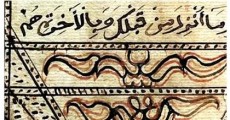 ما أنزل من قبلك وبالآخرة هم